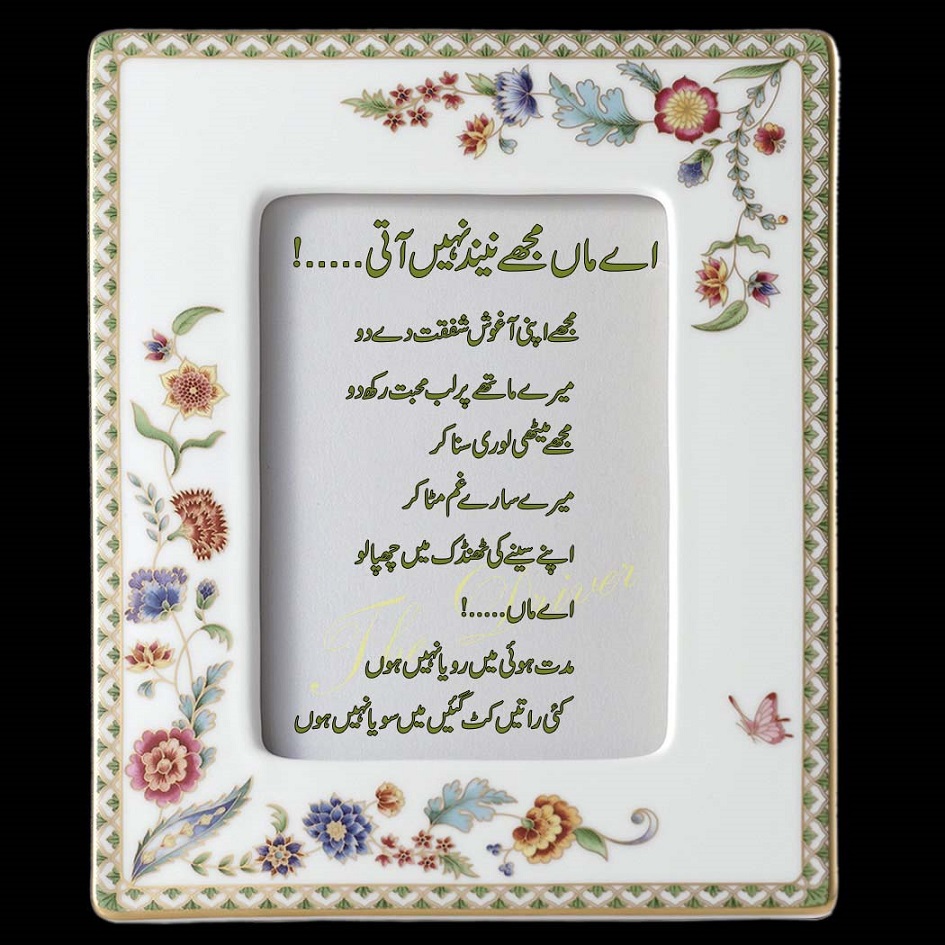 اے ماں مجھے نیند نہیں آتی.....!
مجھے اپنی آغوش شفقت دے دو
میرے ماتھے پر لب محبت رکھ دو
مجھے میٹھی لوری سنا کر
میرے سارے غم مٹا کر
اپنے سینے کی ٹھنڈک میں چھپا لو
اے ماں.....!
مدت ہوئی میں رویا نہیں ہوں
کئی راتیں کٹ گئیں میں سویا نہیں ہوں
The Driver